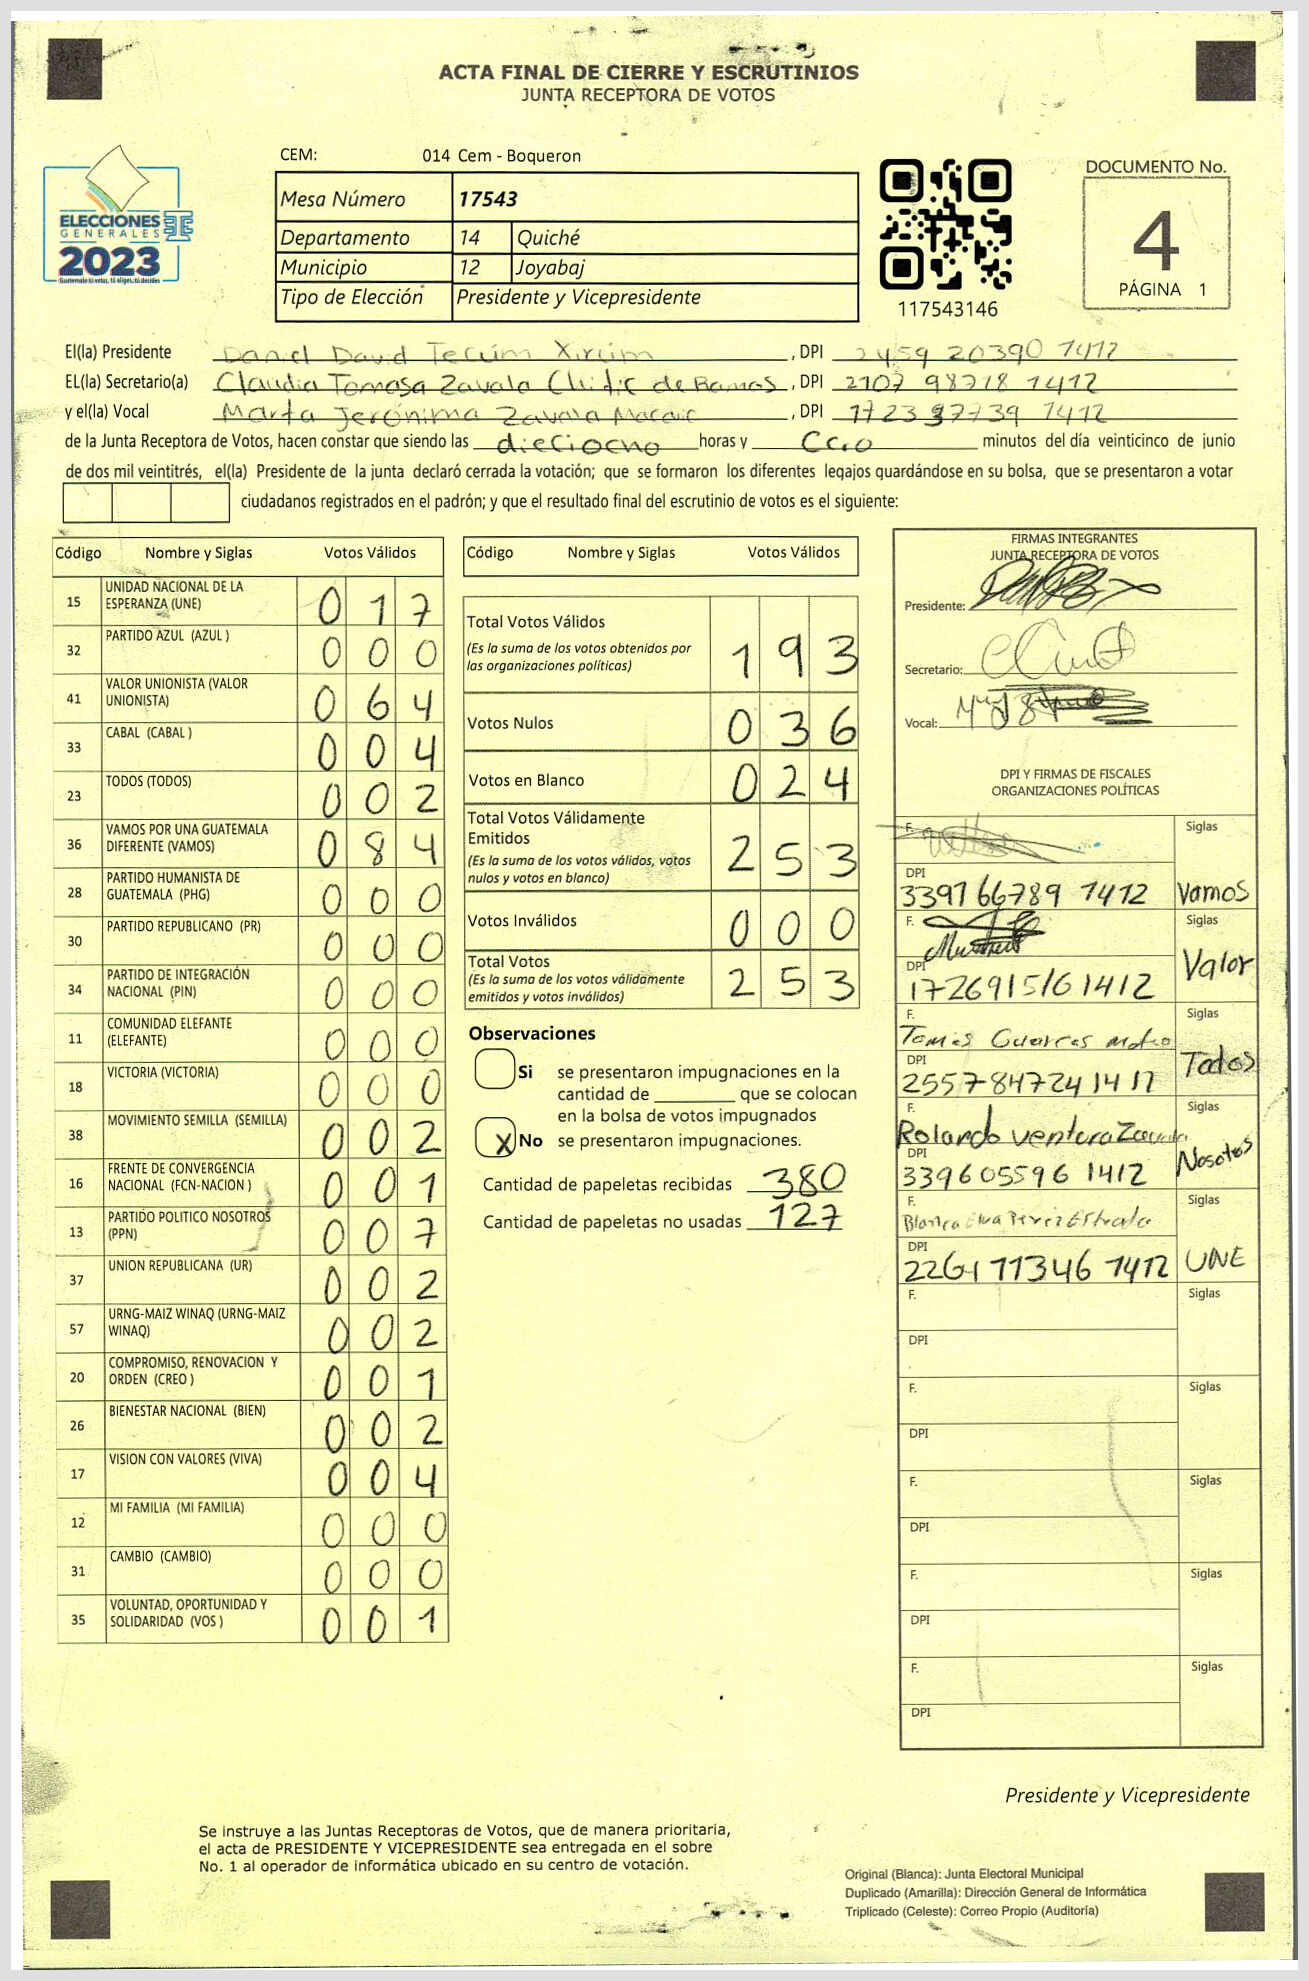 ACTA FINAL DE CIERRE Y ESCRUTINIOS
JUNTA RECEPTORA DE VOTOS
CEM: 014 Cem - Boqueron
ELECCIONES
GENERALES
2023
Guatemala tú votas, tú eliges, tú decides
Mesa Número 17543
Departamento 14 Quiché
Municipio 12 Joyabaj
Tipo de Elección Presidente y Vicepresidente
117543146
DOCUMENTO No.
4
PÁGINA 1
El(la) Presidente Daniel David Tecúm Xircúm , DPI 2459 20390 1412
EL(la) Secretario(a) Claudia Tomasa Zavala Chitic de Ramos , DPI 2107 98718 1412
y el(la) Vocal Marta Jerónima Zavala , DPI 1723 37739 1412
de la Junta Receptora de Votos, hacen constar que siendo las dieciocho horas y cero minutos del día veinticinco de junio
de dos mil veintitrés, el(la) Presidente de la junta declaró cerrada la votación; que se formaron los diferentes legajos guardándose en su bolsa, que se presentaron a votar
ciudadanos registrados en el padrón; y que el resultado final del escrutinio de votos es el siguiente:
Código Nombre y Siglas Votos Válidos
15 UNIDAD NACIONAL DE LA ESPERANZA (UNE) 017
32 PARTIDO AZUL (AZUL ) 000
41 VALOR UNIONISTA (VALOR UNIONISTA) 064
33 CABAL (CABAL ) 004
23 TODOS (TODOS) 002
36 VAMOS POR UNA GUATEMALA DIFERENTE (VAMOS) 084
28 PARTIDO HUMANISTA DE GUATEMALA (PHG) 000
30 PARTIDO REPUBLICANO (PR) 000
34 PARTIDO DE INTEGRACIÓN NACIONAL (PIN) 000
11 COMUNIDAD ELEFANTE (ELEFANTE) 000
18 VICTORIA (VICTORIA) 000
38 MOVIMIENTO SEMILLA (SEMILLA) 002
16 FRENTE DE CONVERGENCIA NACIONAL (FCN-NACION ) 001
13 PARTIDO POLITICO NOSOTROS (PPN) 007
37 UNION REPUBLICANA (UR) 002
57 URNG-MAIZ WINAQ (URNG-MAIZ WINAQ) 002
20 COMPROMISO, RENOVACION Y ORDEN (CREO ) 001
26 BIENESTAR NACIONAL (BIEN) 002
17 VISION CON VALORES (VIVA) 004
12 MI FAMILIA (MI FAMILIA) 000
31 CAMBIO (CAMBIO) 000
35 VOLUNTAD, OPORTUNIDAD Y SOLIDARIDAD (VOS ) 001
Código Nombre y Siglas Votos Válidos
Total Votos Válidos 193
(Es la suma de los votos obtenidos por
las organizaciones políticas)
Votos Nulos 036
Votos en Blanco 024
Total Votos Válidamente
Emitidos 253
(Es la suma de los votos válidos, votos
nulos y votos en blanco)
Votos Inválidos 000
Total Votos 253
(Es la suma de los votos válidamente
emitidos y votos inválidos)
Observaciones
Si se presentaron impugnaciones en la
cantidad de ________ que se colocan
en la bolsa de votos impugnados
X No se presentaron impugnaciones.
Cantidad de papeletas recibidas 380
Cantidad de papeletas no usadas 127
FIRMAS INTEGRANTES
JUNTA RECEPTORA DE VOTOS
Presidente:
Secretario:
Vocal:
DPI Y FIRMAS DE FISCALES
ORGANIZACIONES POLÍTICAS
F. Siglas
DPI
3397 66789 1412 Vamos
F. Siglas
DPI Valor
1726915161412
F. Siglas
Tomas Cuarcas Mateo
DPI Todos
2557847241412
F. Siglas
Rolando Ventura Zavala
DPI Nosotros
339605596 1412
F. Siglas
Blanca Elva Perez Estrada
DPI
2261 11346 1412 UNE
F. Siglas
DPI
F. Siglas
DPI
F. Siglas
DPI
F. Siglas
DPI
F. Siglas
DPI
Presidente y Vicepresidente
Se instruye a las Juntas Receptoras de Votos, que de manera prioritaria,
el acta de PRESIDENTE Y VICEPRESIDENTE sea entregada en el sobre
No. 1 al operador de informática ubicado en su centro de votación.
Original (Blanca): Junta Electoral Municipal
Duplicado (Amarilla): Dirección General de Informática
Triplicado (Celeste): Correo Propio (Auditoría)